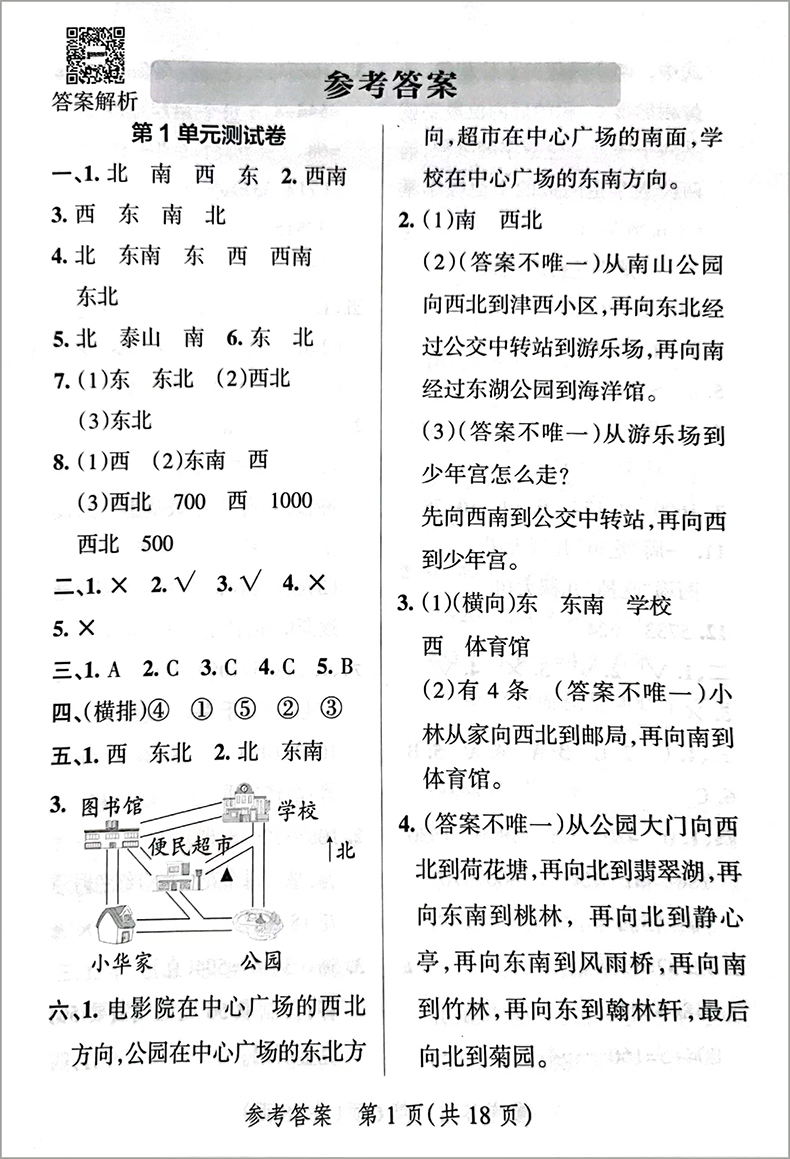 答案解析
参考答案
第1单元测试卷
一、1. 北 南 西 东 2. 西南
3. 西 东 南 北
4. 北 东南 东 西 西南
东北
5. 北 泰山 南 6. 东 北
7. (1)东 东北 (2)西北
(3)东北
8. (1)西 (2)东南 西
(3)西北 700 西 1000
西北 500
二、1. × 2. √ 3. √ 4. ×
5. ×
三、1. A 2. C 3. C 4. C 5. B
四、(横排)④ ① ⑤ ② ③
五、1. 西 东北 2. 北 东南
3. 图书馆 学校
便民超市 ▲ ↑北
小华家 公园
六、1. 电影院在中心广场的西北
方向,公园在中心广场的东北方
向,超市在中心广场的南面,学
校在中心广场的东南方向。
2. (1)南 西北
(2)(答案不唯一)从南山公园
向西北到津西小区,再向东北经
过公交中转站到游乐场,再向南
经过东湖公园到海洋馆。
(3)(答案不唯一)从游乐场到
少年宫怎么走?
先向西南到公交中转站,再向西
到少年宫。
3. (1)(横向)东 东南 学校
西 体育馆
(2)有4条 (答案不唯一)小
林从家向西北到邮局,再向南到
体育馆。
4. (答案不唯一)从公园大门向西
北到荷花塘,再向北到翡翠湖,再
向东南到桃林,再向北到静心
亭,再向东南到风雨桥,再向南
到竹林,再向东到翰林轩,最后
向北到菊园。
参考答案 第1页(共18页)